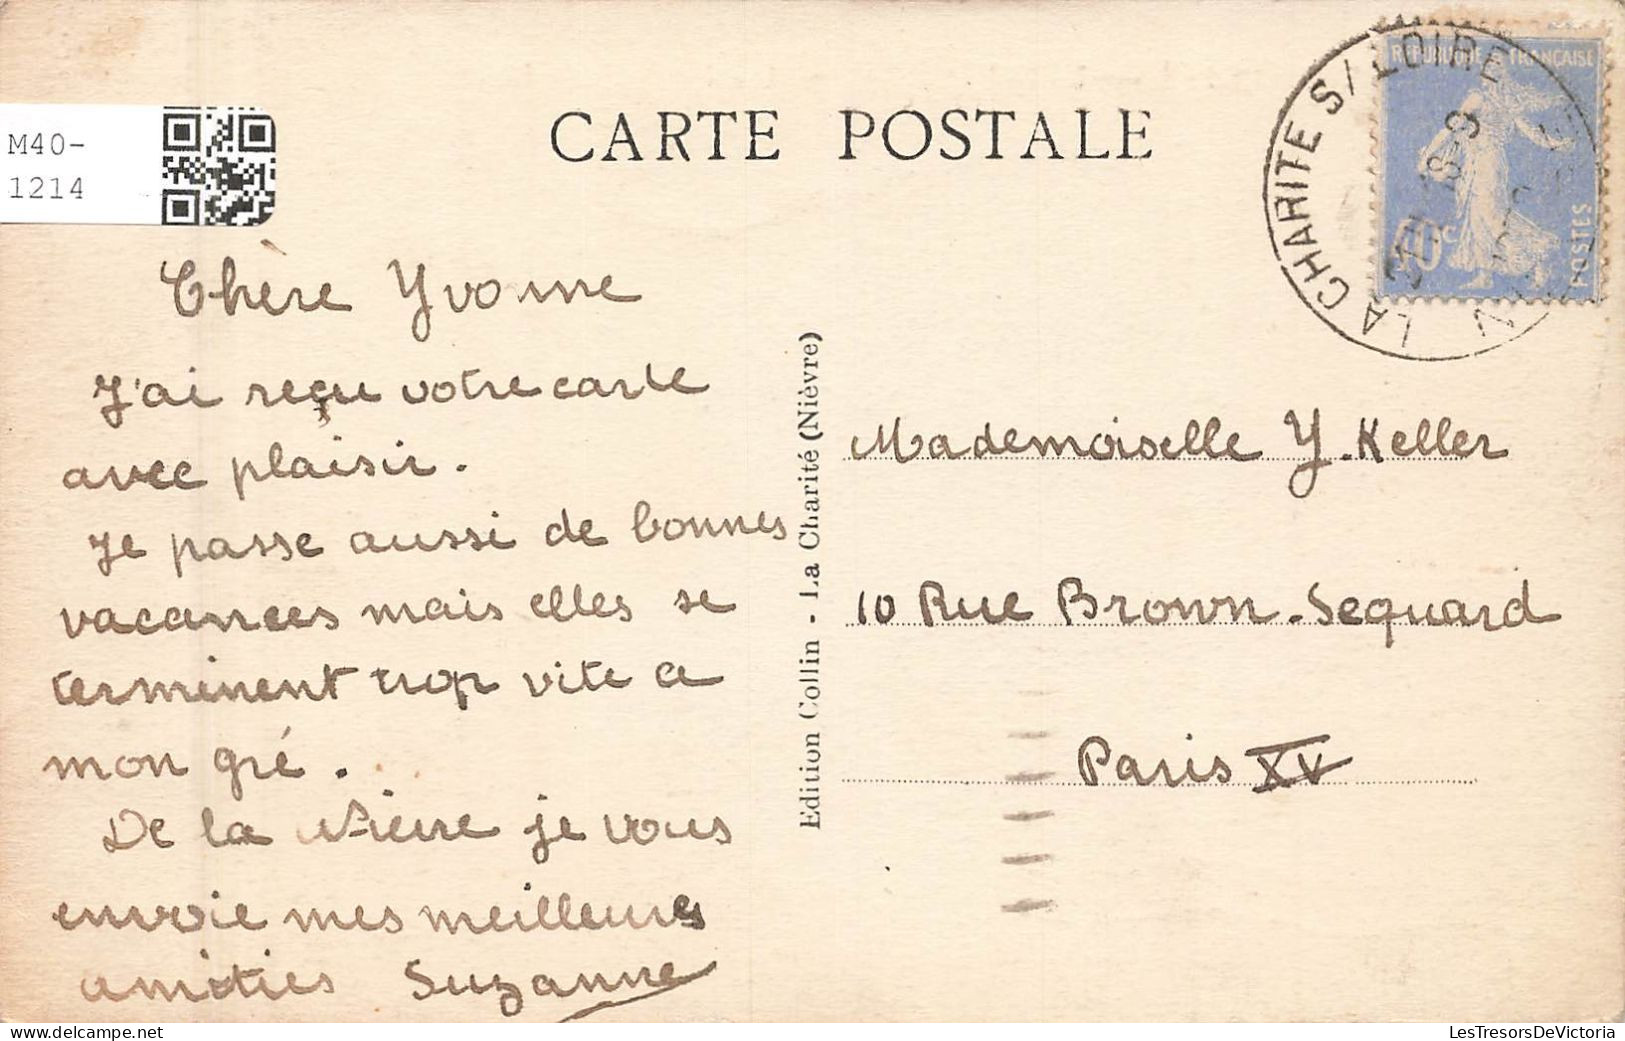 M40-
1214
CARTE POSTALE
LA CHARITE S/ LOIRE
REPUBLIQUE FRANÇAISE
40c
POSTES
Chère Yvonne
J'ai reçu votre carte
avec plaisir.
Je passe aussi de bonnes
vacances mais elles se
terminent trop vite a
mon gré.
De la Nievre je vous
envoie mes meilleures
amitiés Suzanne
Edition Collin - La Charité (Nièvre)
Mademoiselle Y. Keller
10 Rue Brown-Sequard
Paris XV
www.delcampe.net
LesTresorsDeVictoria